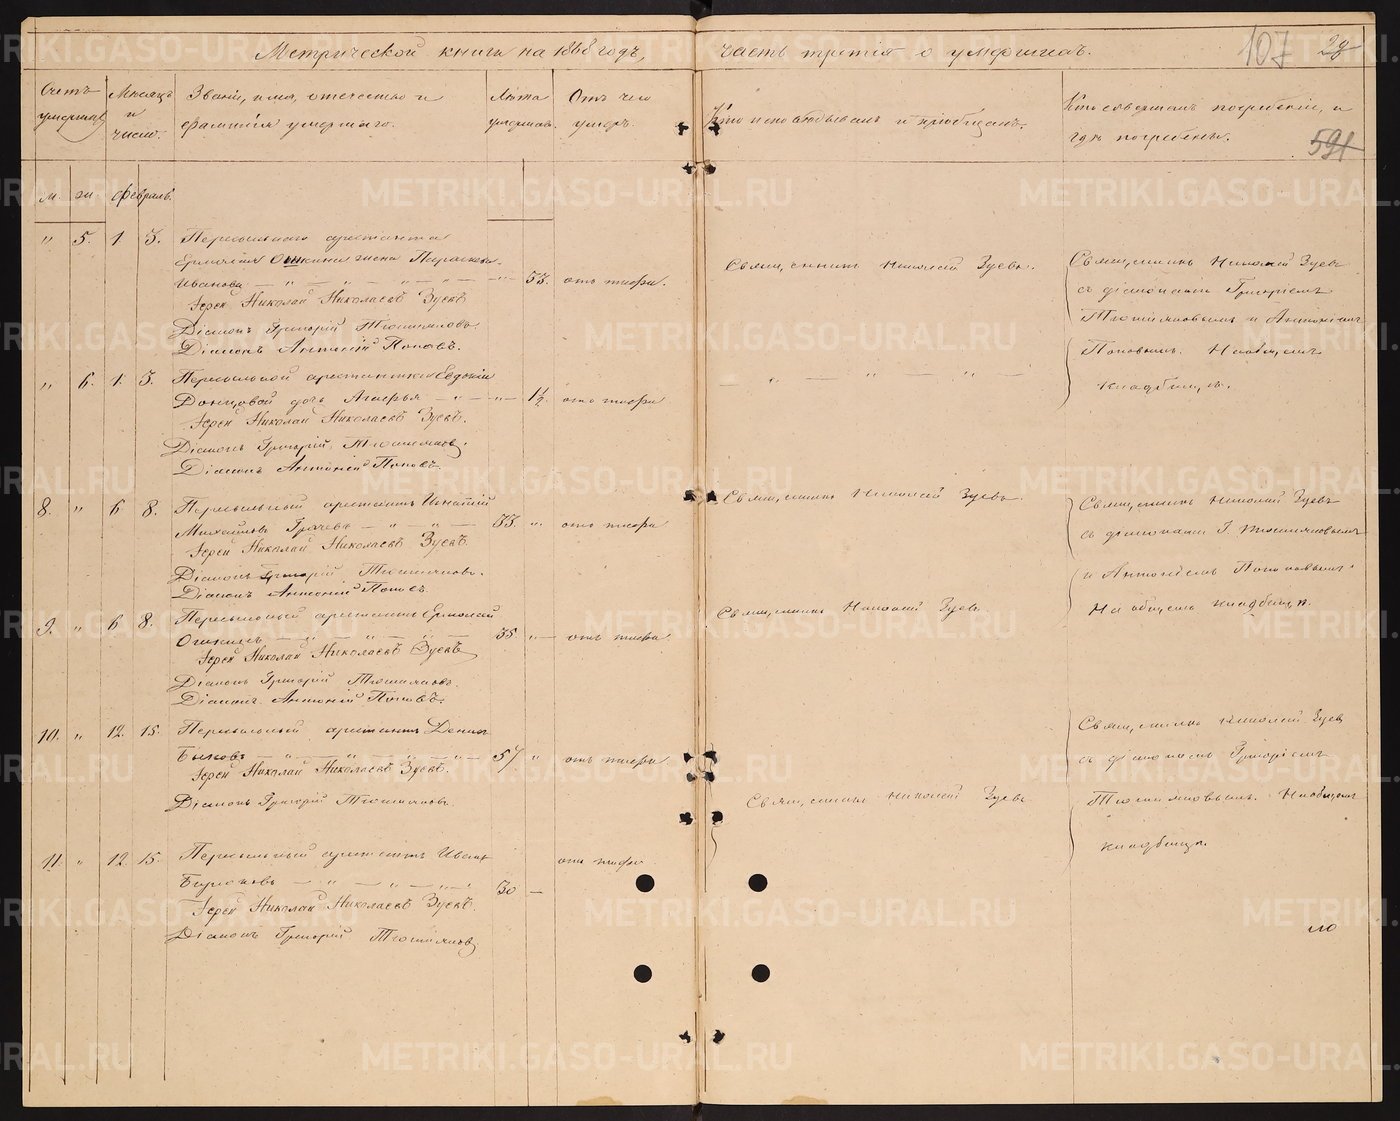 Метрической книги на 1868 годъ,
часть третія о умершихъ.
107
29
591
Счетъ
умерших
Мѣсяцъ
и
число.
Званіе, имя, отечество и
фамилія умершаго.
Лѣта
умершаго.
Отъ чего
умеръ.
Кто исповѣдывалъ и пріобщалъ.
Кто совершалъ погребеніе, и
гдѣ погребены.
м. ж. Февраль.
" 5. 1 3. Пересыльнаго арестанта
Ермолая Ошкина жена Параскева
Иванова — " — " — " — " — 53. отъ тифа.
Іерей Николай Николаевъ Зуевъ
Діаконъ Григорій
Діаконъ Антоній Поповъ.
Священникъ Николай Зуевъ.
Священникъ Николай Зуевъ
съ діаконами Григоріемъ
и Антоніемъ
Поповымъ. На общемъ
кладбищѣ.
" 6. 1. 3. Пересыльной арестантки Евдокіи
Донцовой дочь Агафья — " — " — 1½ отъ тифа
Іерей Николай Николаевъ Зуевъ.
Діаконъ Григорій
Діаконъ Антоній Поповъ.
— " — " — " —
8. " 6 8. Пересыльный арестантъ Игнатій
Михайловъ Грачевъ — " — " — 33 " отъ тифа
Іерей Николай Николаевъ Зуевъ.
Діаконъ Григорій
Діаконъ Антоній Поповъ.
Священникъ Николай Зуевъ.
Священникъ Николай Зуевъ
съ діаконами Г.
и Антоніемъ Поповымъ.
На общемъ кладбищѣ.
9. " 6 8. Пересыльный арестантъ Ермолай
Ошкинъ — " — " — " — 35 " — отъ тифа
Іерей Николай Николаевъ Зуевъ
Діаконъ Григорій
Діаконъ Антоній Поповъ.
Священникъ Николай Зуевъ
10. " 12. 15. Пересыльный арестантъ Денис
Быковъ — " — " — " — " — 57 " отъ тифа
Іерей Николай Николаевъ Зуевъ.
Діаконъ Григорій
Священникъ Николай Зуевъ
Священникъ Николай Зуев
съ діакономъ Григоріемъ
На общемъ
кладбищѣ.
11. " 12 15. Пересыльный арестантъ Иванъ
— " — " — " 30 — отъ тифа
Іерей Николай Николаевъ Зуевъ.
Діаконъ Григорій
METRIKI.GASO-URAL.RU